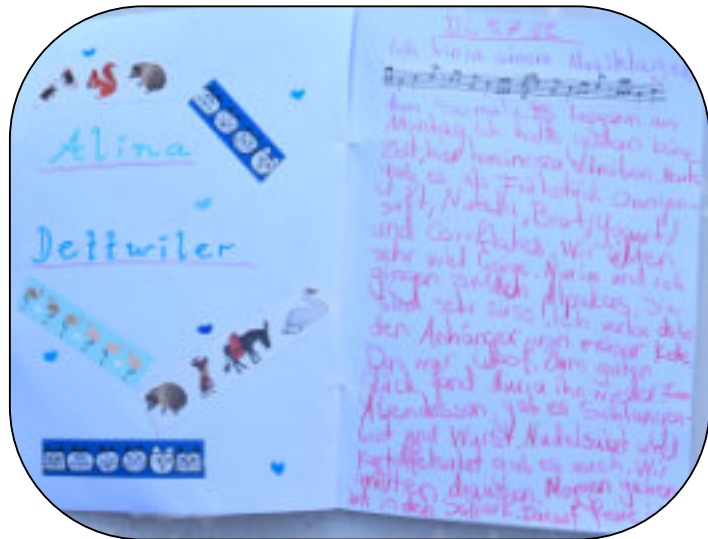 Alina
Dettwiler
Di 5.7.22
Ich bin in einem Musiklager
Am Samstag begann
Montag. Ich hatte gestern keine
Zeit, hier heute
gab es als Frühstück Orangen-
saft, Nutella, Brot, Yogurt
und Cornflakes. Wir
sehr viel Gage. Nuria und ich
gingen zu den Alpakas. Sie
sind sehr süss. Ich verlor dabei
den Anhänger von meiner Kette.
Das war doof. Zum guten
Glück fand Nuria ihn wieder. Zum
Abendessen gab es Schlangen-
brot und Wurst. Nudelsalat und
Kartoffelsalat gab es auch. Wir
draußen. Morgen gehen
wir in den Seilpark. Darauf freue